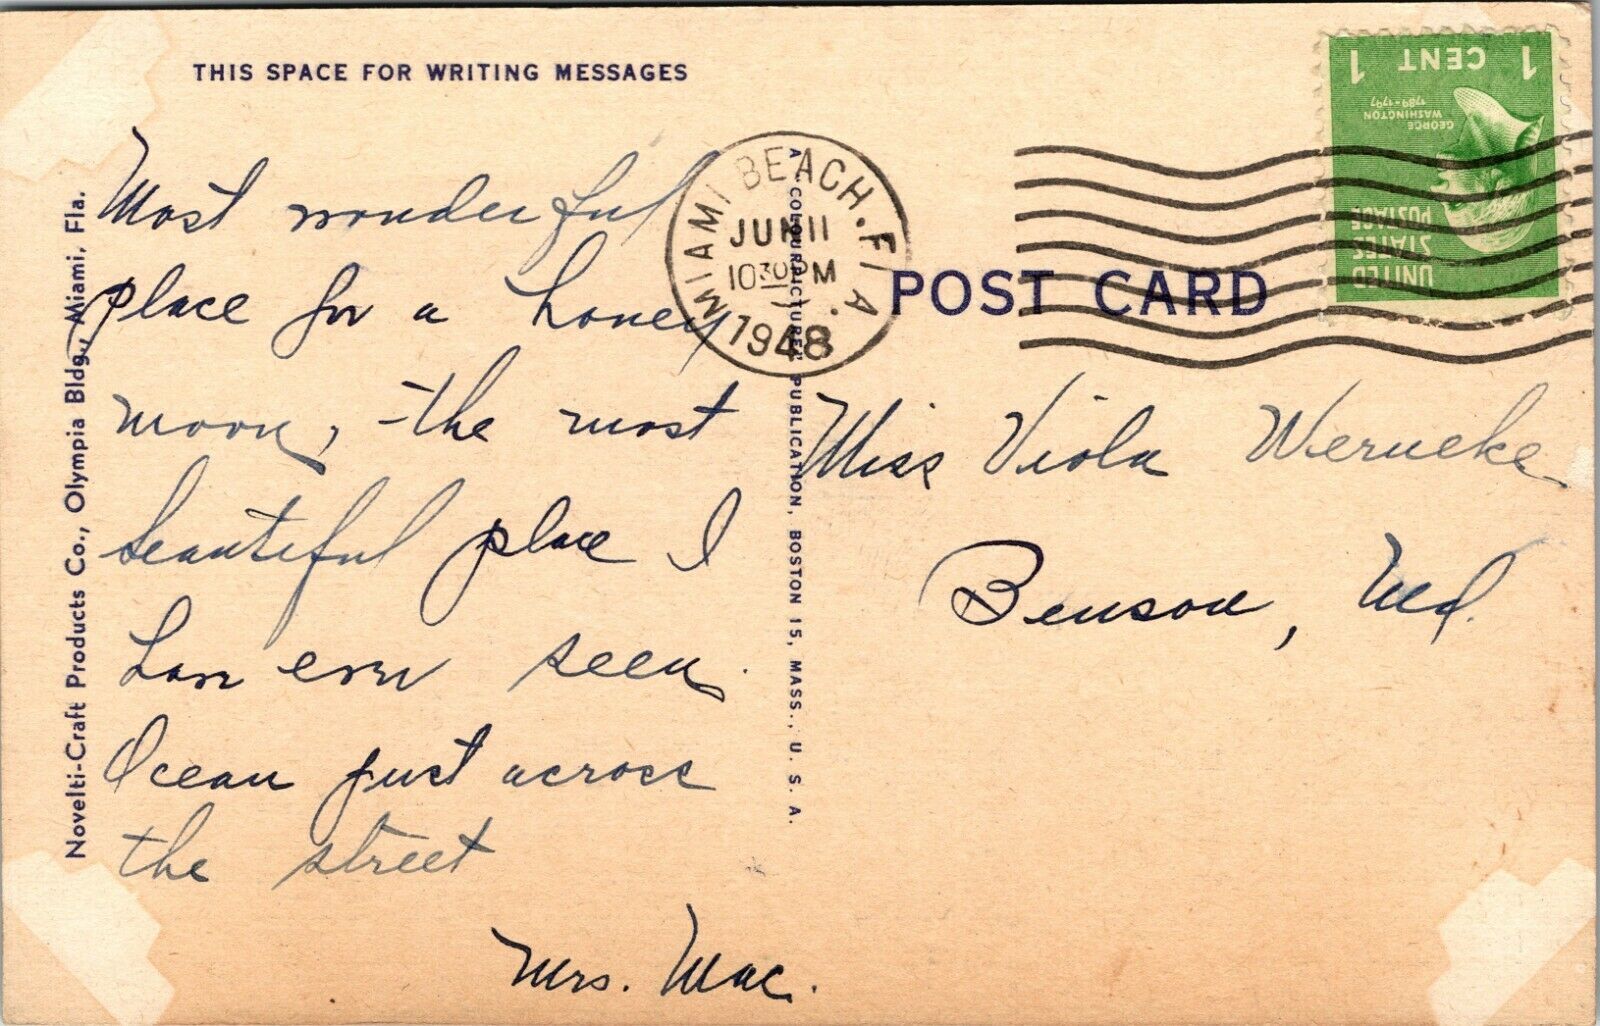 THIS SPACE FOR WRITING MESSAGES
Most wonderful
place for a honey
moon, - the most
beautiful place I
have ever seen.
Ocean just across
the street
Mrs. Mac.
Novelti-Craft Products Co., Olympia Bldg., Miami, Fla.
A COLOURPICTURE PUBLICATION, BOSTON 15, MASS., U. S. A.
MIAMI BEACH. FLA.
JUN 11
10 30 PM
1948
POST CARD
1 CENT 1
GEORGE
WASHINGTON
1789-1797
UNITED
STATES
POSTAGE
Miss Viola Werneke
Benson, Md.